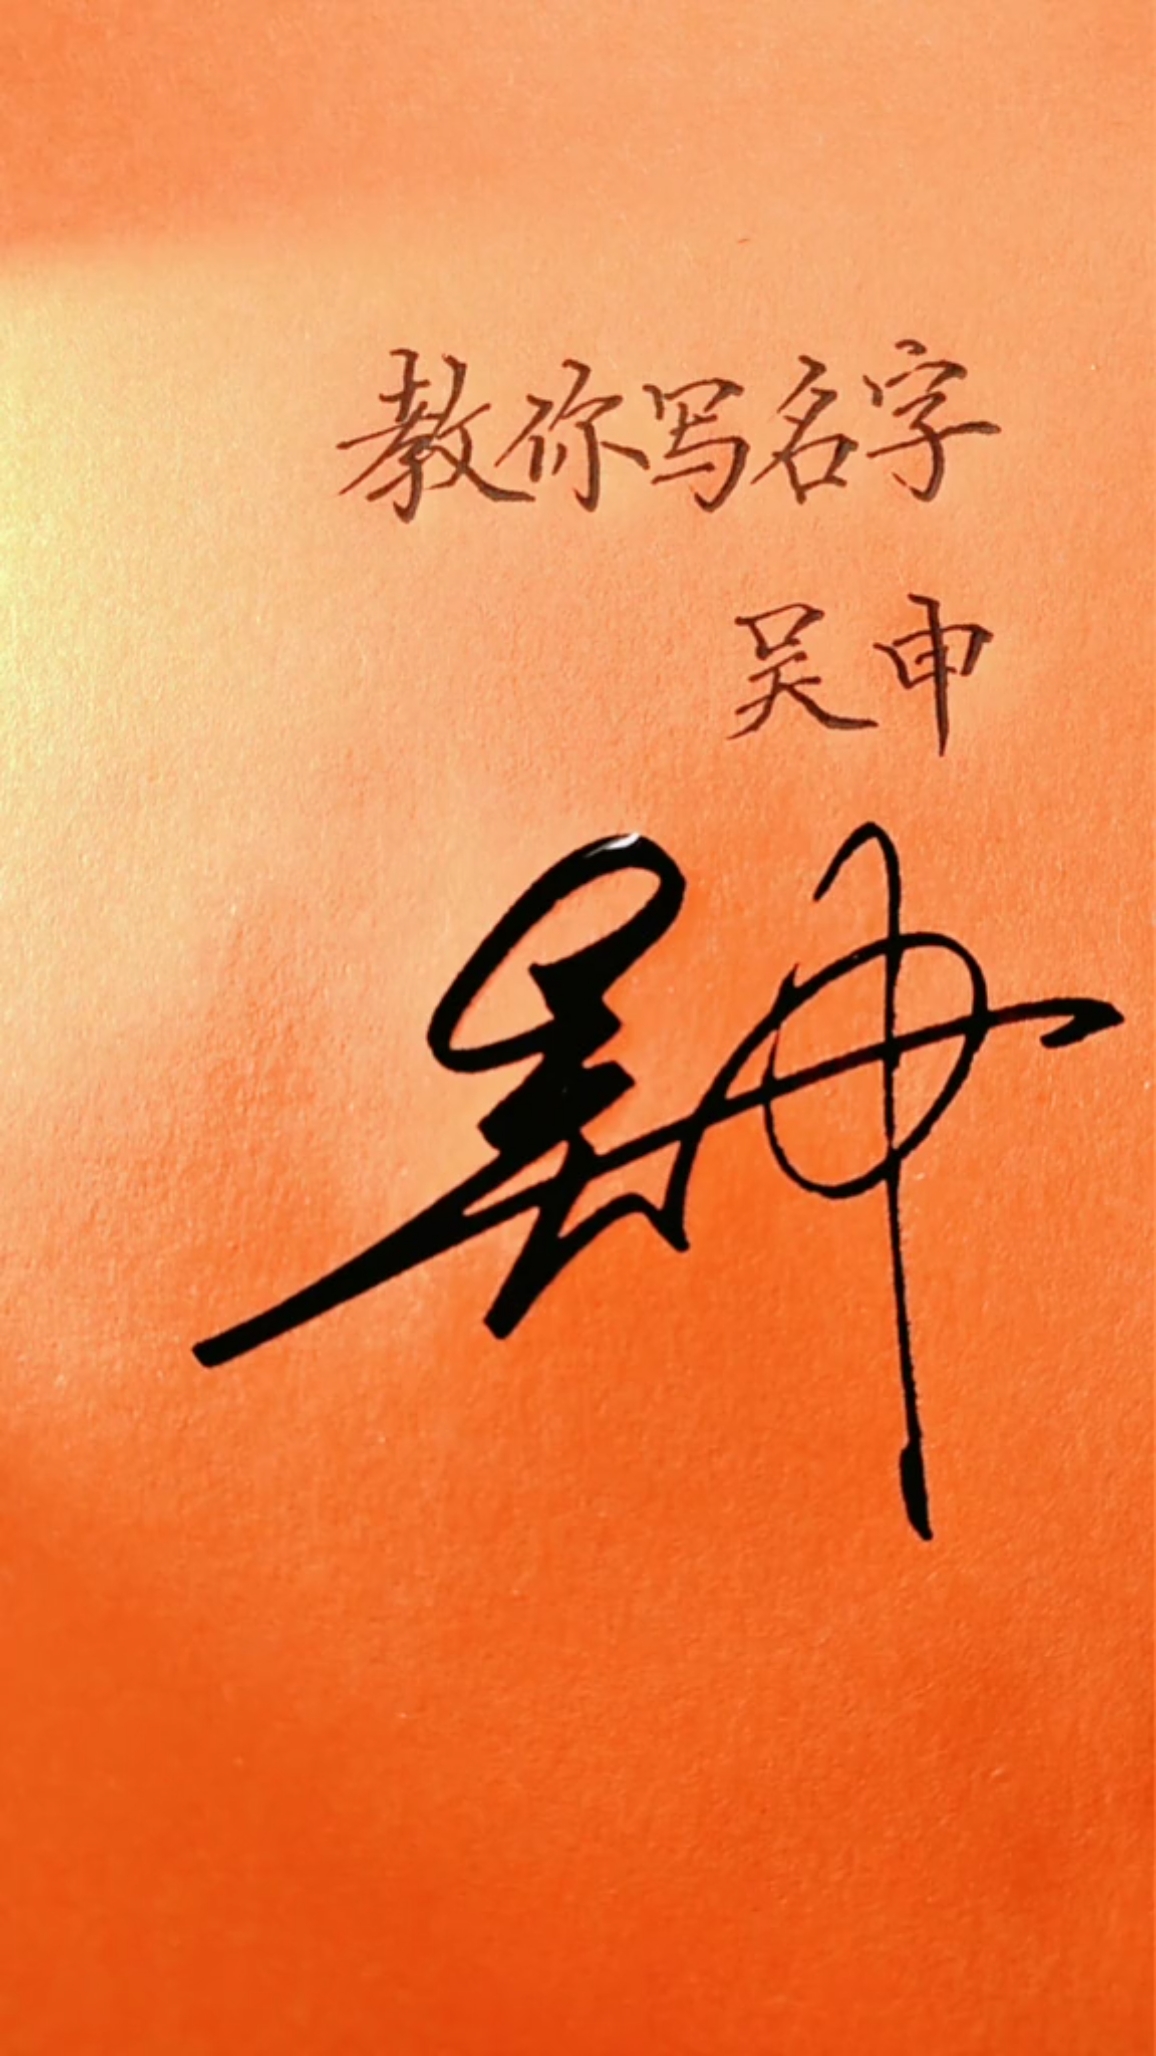 教你写名字
吴申
吴申